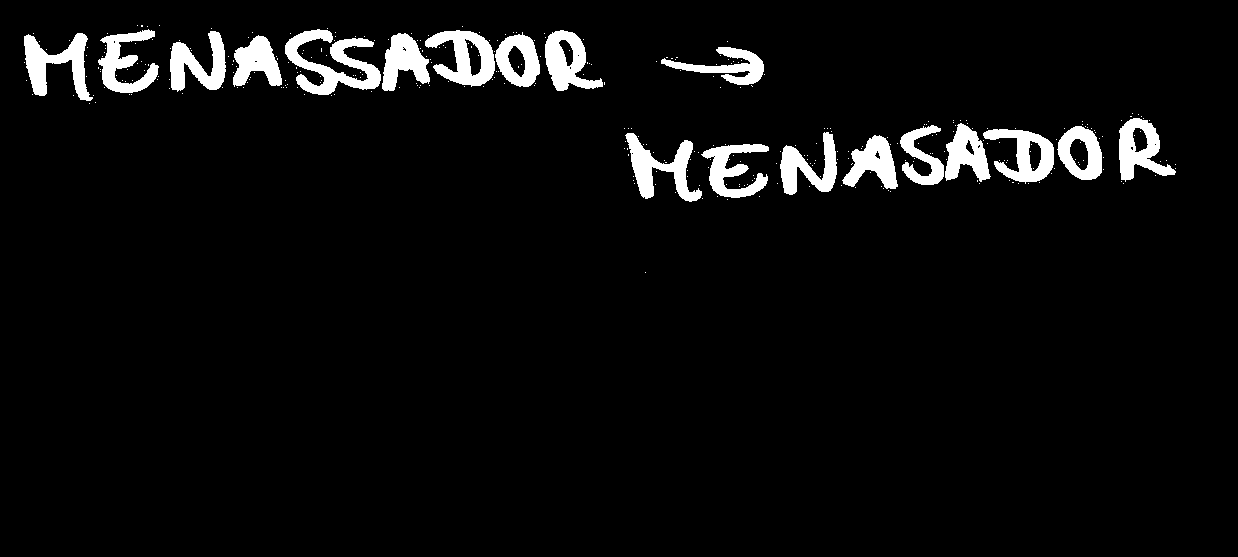 MENASSADOR →
MENASADOR